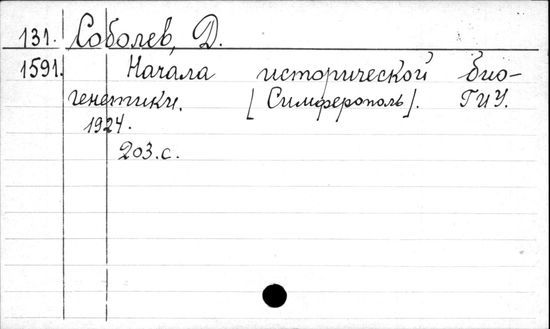 131. Соболев, Д.
1591. Начала исторической био-
генетики. [Симферополь]. ГИУ.
1924.
203.с.